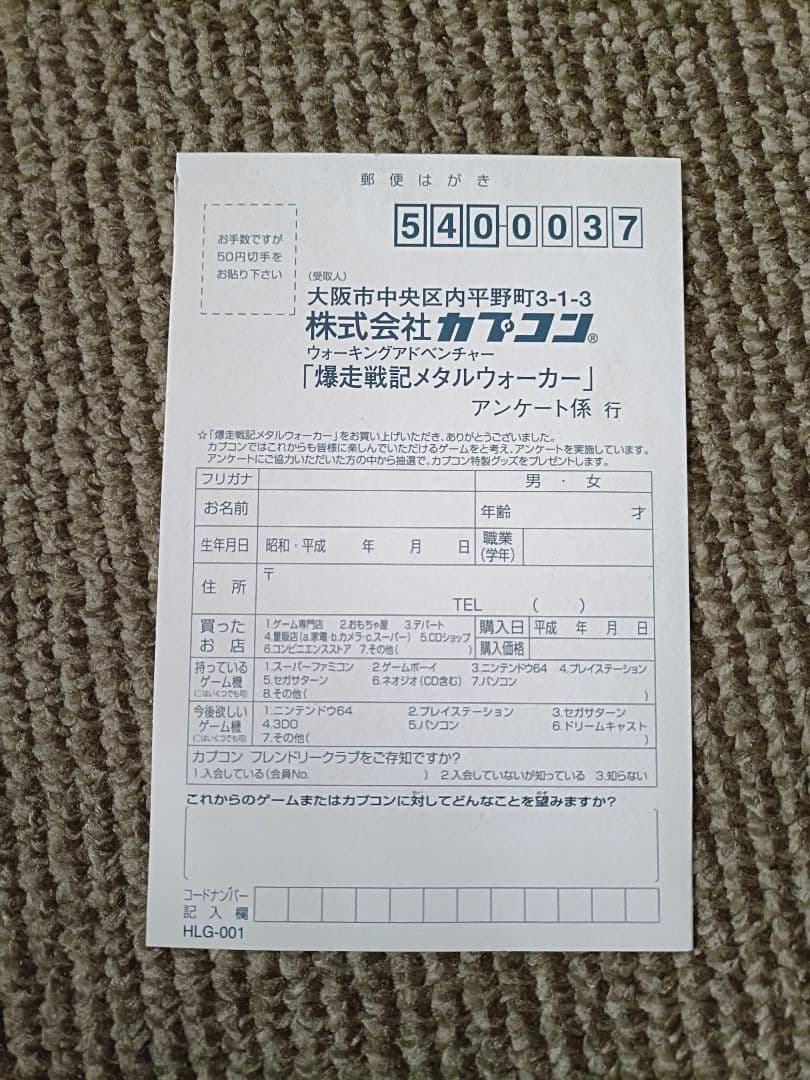 郵便はがき
お手数ですが
50円切手を
お貼り下さい
540-0037
(受取人)
大阪市中央区内平野町3-1-3
株式会社カプコン®
ウォーキングアドベンチャー
「爆走戦記メタルウォーカー」
アンケート係 行
☆「爆走戦記メタルウォーカー」をお買い上げいただき、ありがとうございました。
カプコンではこれからも皆様に楽しんでいただけるゲームをと考え、アンケートを実施しています。
アンケートにご協力いただいた方の中から抽選で、カプコン特製グッズをプレゼントします。
フリガナ 男・女
お名前 年齢 才
生年月日 昭和・平成 年 月 日 職業(学年)
住所 〒
TEL ( )
買ったお店
1.ゲーム専門店 2.おもちゃ屋 3.デパート
4.量販店(a.家電・b.カメラ・c.スーパー) 5.CDショップ
6.コンビニエンスストア 7.その他( )
購入日 平成 年 月 日
購入価格
持っているゲーム機(にはいくつでも可)
1.スーパーファミコン 2.ゲームボーイ 3.ニンテンドウ64 4.プレイステーション
5.セガサターン 6.ネオジオ(CD含む) 7.パソコン
8.その他( )
今後欲しいゲーム機(にはいくつでも可)
1.ニンテンドウ64 2.プレイステーション 3.セガサターン
4.3DO 5.パソコン 6.ドリームキャスト
7.その他( )
カプコン フレンドリークラブをご存知ですか?
1.入会している(会員No. ) 2.入会していないが知っている 3.知らない
これからのゲームまたはカプコンに対してどんなことを望みますか?
コードナンバー
記入欄
HLG-001